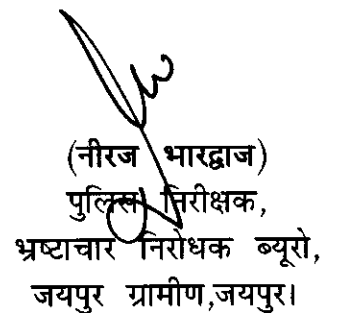 (नीरज भारद्वाज)
पुलिस निरीक्षक,
भ्रष्टाचार निरोधक ब्यूरो,
जयपुर ग्रामीण,जयपुर।